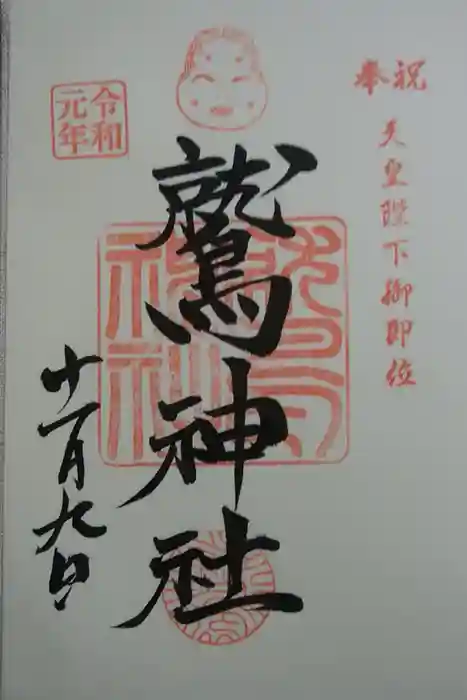 奉祝
天皇陛下御即位
令和
元年
鷲神社
十一月九日